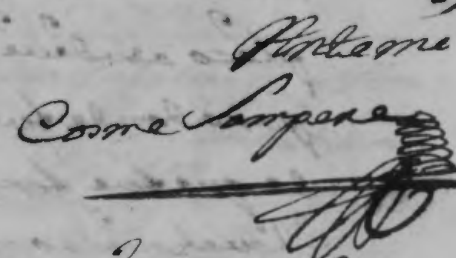 Ante mi
Cosme Sempere